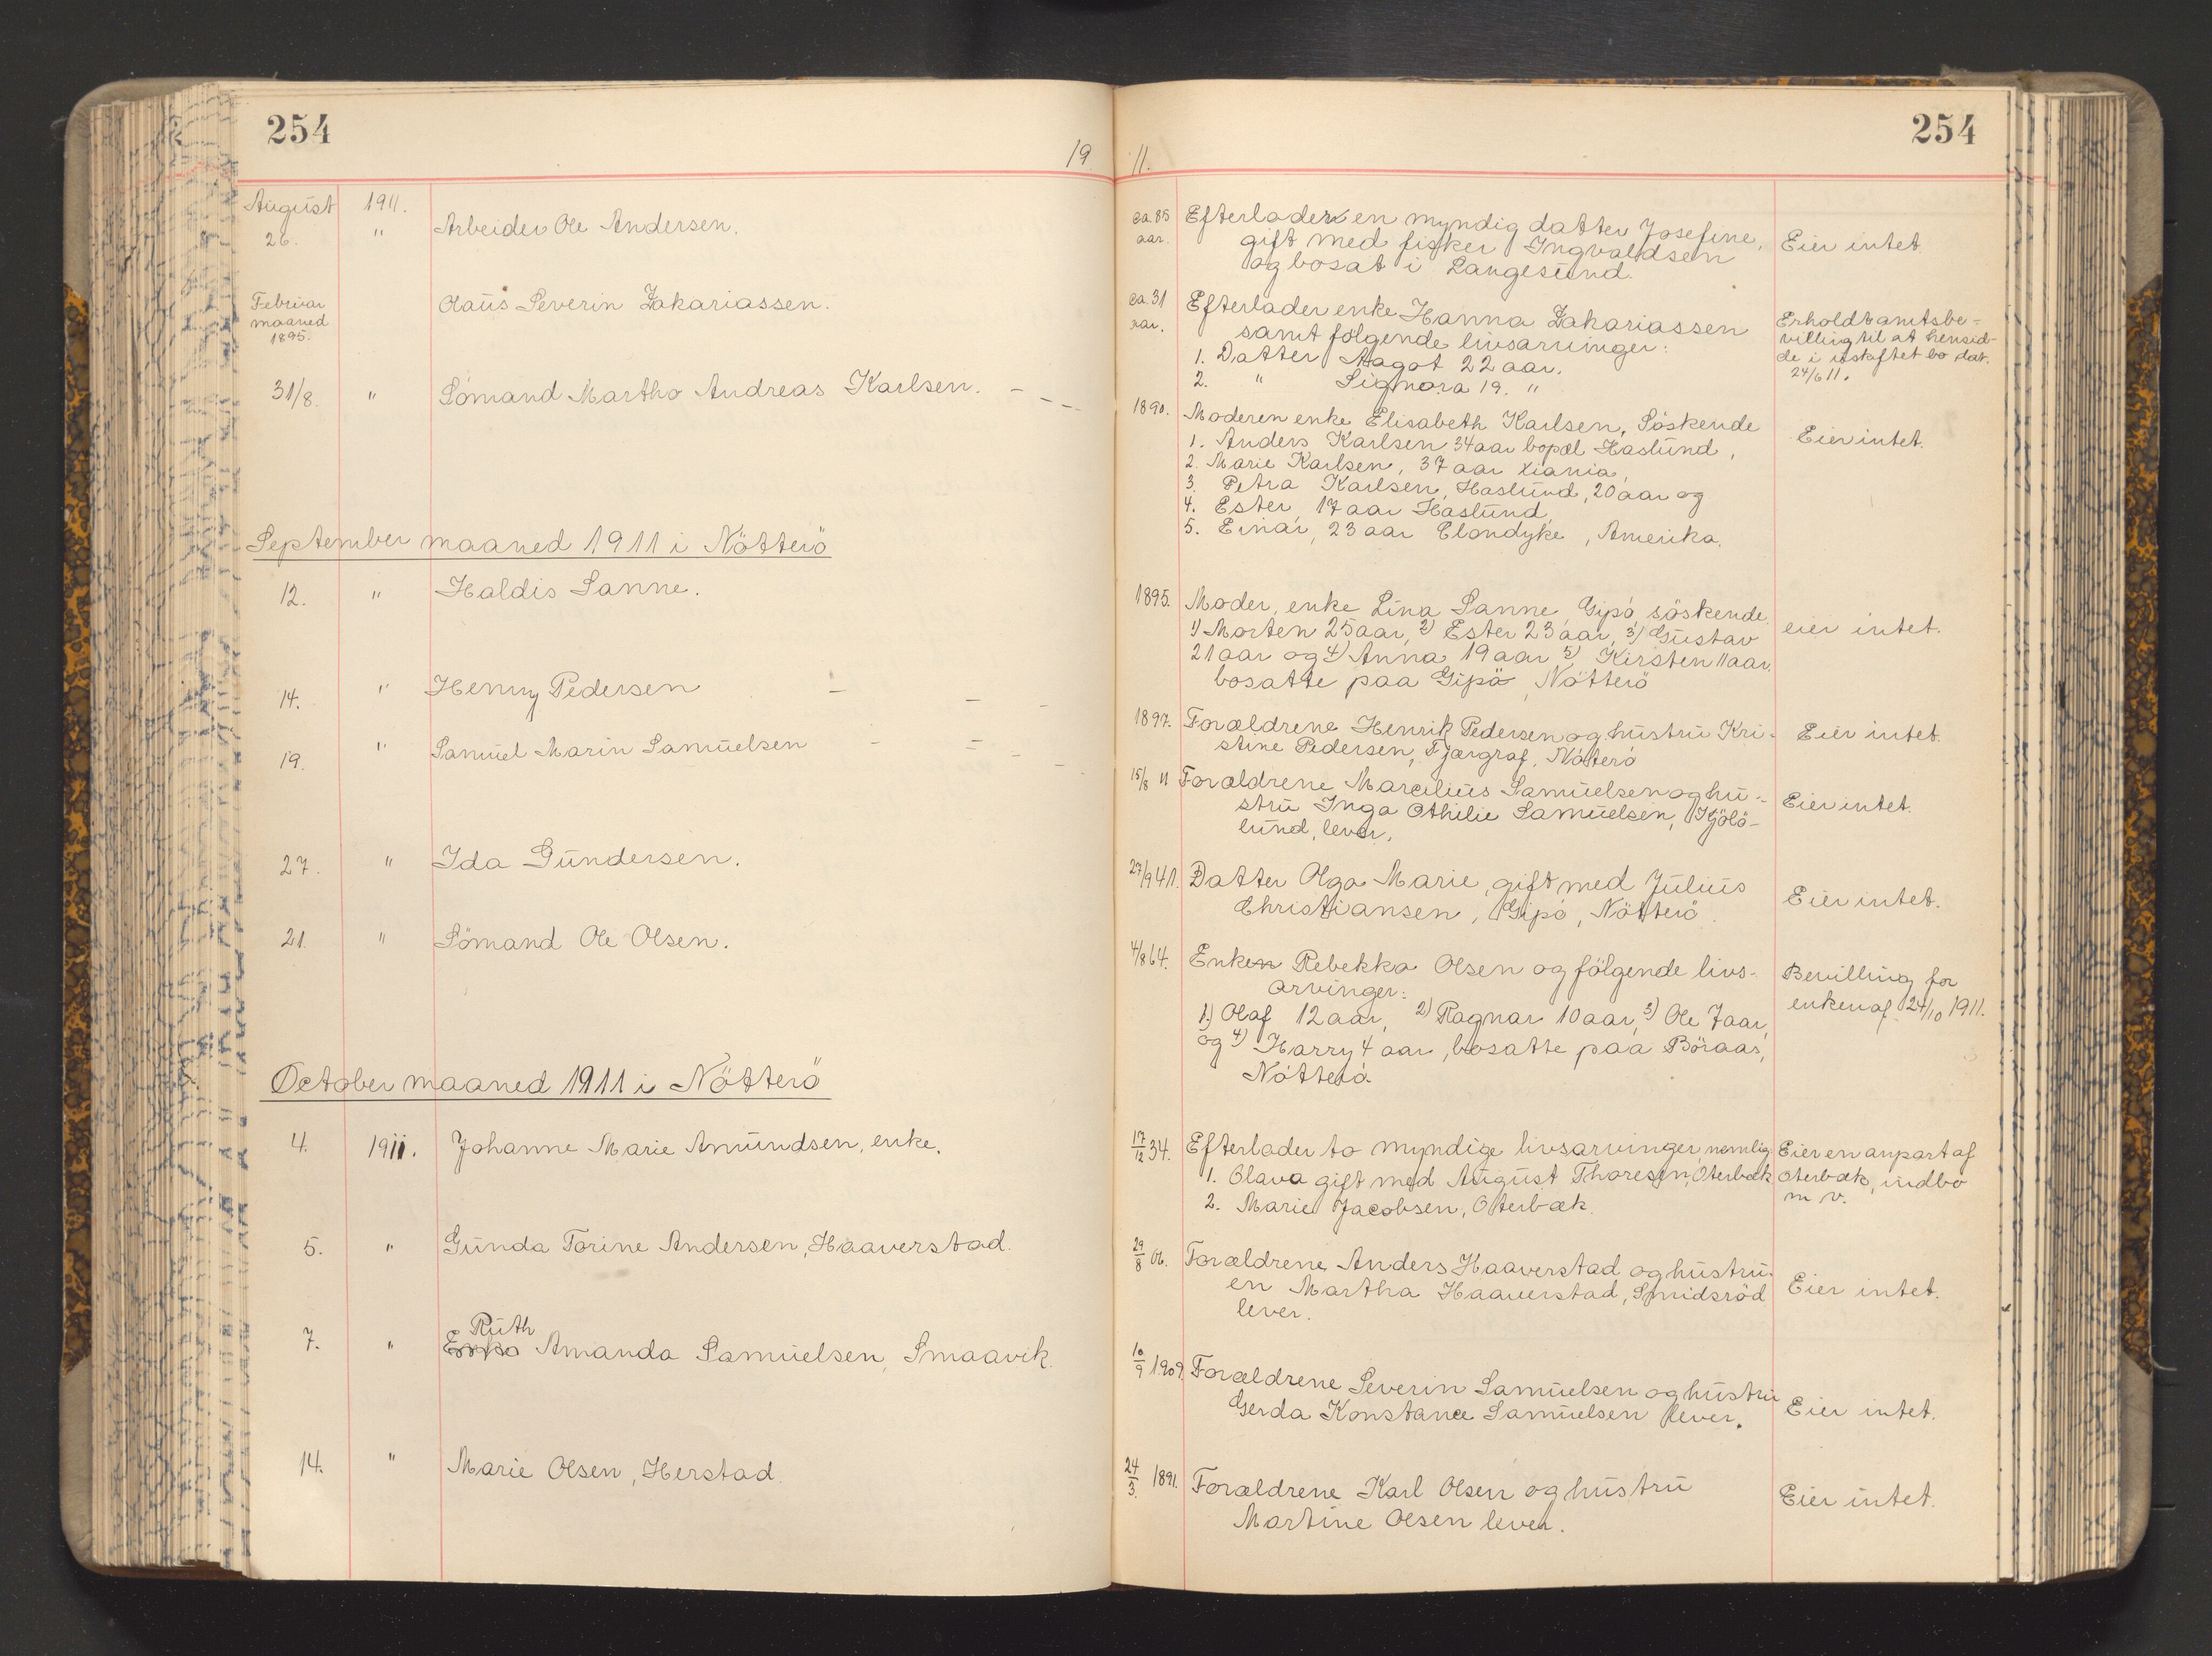 254
19
11.
254
August 1911.
26. " Arbeider Ole Andersen.
ca. 85 aar.
Efterlader en myndig datter Josefine,
gift med fisker Ingvaldsen
og bosat i Langesund.
Eier intet.
Februar
maaned
1895.
Olaus Severin Zakariassen.
ca. 31 aar.
Efterlader enke Hanna Zakariassen
samt følgende livsarvinger:
1. Datter Aagot 22 aar.
2. " Signora 19. "
Erholdt amtsbe-
villing til at hensid-
de i uskiftet bo dat.
24/6 11.
31/8. " Sømand Martho Andreas Karlsen.
1890.
Moderen enke Elisabeth Karlsen, Søskende
1. Anders Karlsen 34 aar bopæl Haslund,
2. Marie Karlsen, 37 aar Xiania,
3. Petra Karlsen, Haslund, 20 aar og
4. Ester, 17 aar Haslund,
5. Einar, 23 aar Clondyke, Amerika.
Eier intet.
September maaned 1911 i Nötterö
12. " Haldis Sanne.
1895.
Moder, enke Lina Sanne, Gipö, söskende
1) Morten 25 aar, 2) Ester 23 aar, 3) Gustav
21 aar og 4) Anna 19 aar 5) Kirsten 11 aar.
bosatte paa Gipö, Nötterö
eier intet.
14. " Henry Pedersen
1897.
Forældrene Henrik Pedersen og hustru Kri-
stine Pedersen, Fjærgraf, Nötterö
Eier intet.
19. " Samuel Marin Samuelsen
15/8 11
Forældrene Marcilius Samuelsen og hu-
stru Inga Othilie Samuelsen, Kjölö-
lund, lever.
Eier intet.
27. " Ida Gundersen.
27/9 41.
Datter Olga Marie, gift med Julius
Christiansen, Gipö, Nötterö.
Eier intet.
21. " Sömand Ole Olsen.
4/8 64.
Enken Rebekka Olsen og fölgende livs-
arvinger:
1.) Olaf 12 aar, 2) Ragnar 10 aar, 3) Ole 7 aar,
og 4) Harry 4 aar, bosatte paa Böraas,
Nötterö.
Bevilling for
enken af 24/10 1911.
October maaned 1911 i Nötterö
4. 1911. Johanne Marie Amundsen, enke.
17/12 34.
Efterlader to myndige livsarvinger, nemlig
1. Olava gift med August Thoresen, Oterbæk
2. Marie Jacobsen, Oterbæk.
Eier en anpart af
Oterbæk, indbo
m v.
5. " Gunda Torine Andersen, Haaverstad.
29/8 06.
Forældrene Anders Haaverstad og hustru-
en Martha Haaverstad, Smidsröd
lever.
Eier intet.
Ruth
7. " Amanda Samuelsen, Smaavik.
10/9 1909.
Forældrene Severin Samuelsen og hustru
Gerda Konstance Samuelsen lever.
Eier intet.
14. " Marie Olsen, Herstad.
24/3. 1891.
Forældrene Karl Olsen og hustru
Martine Olsen lever.
Eier intet.